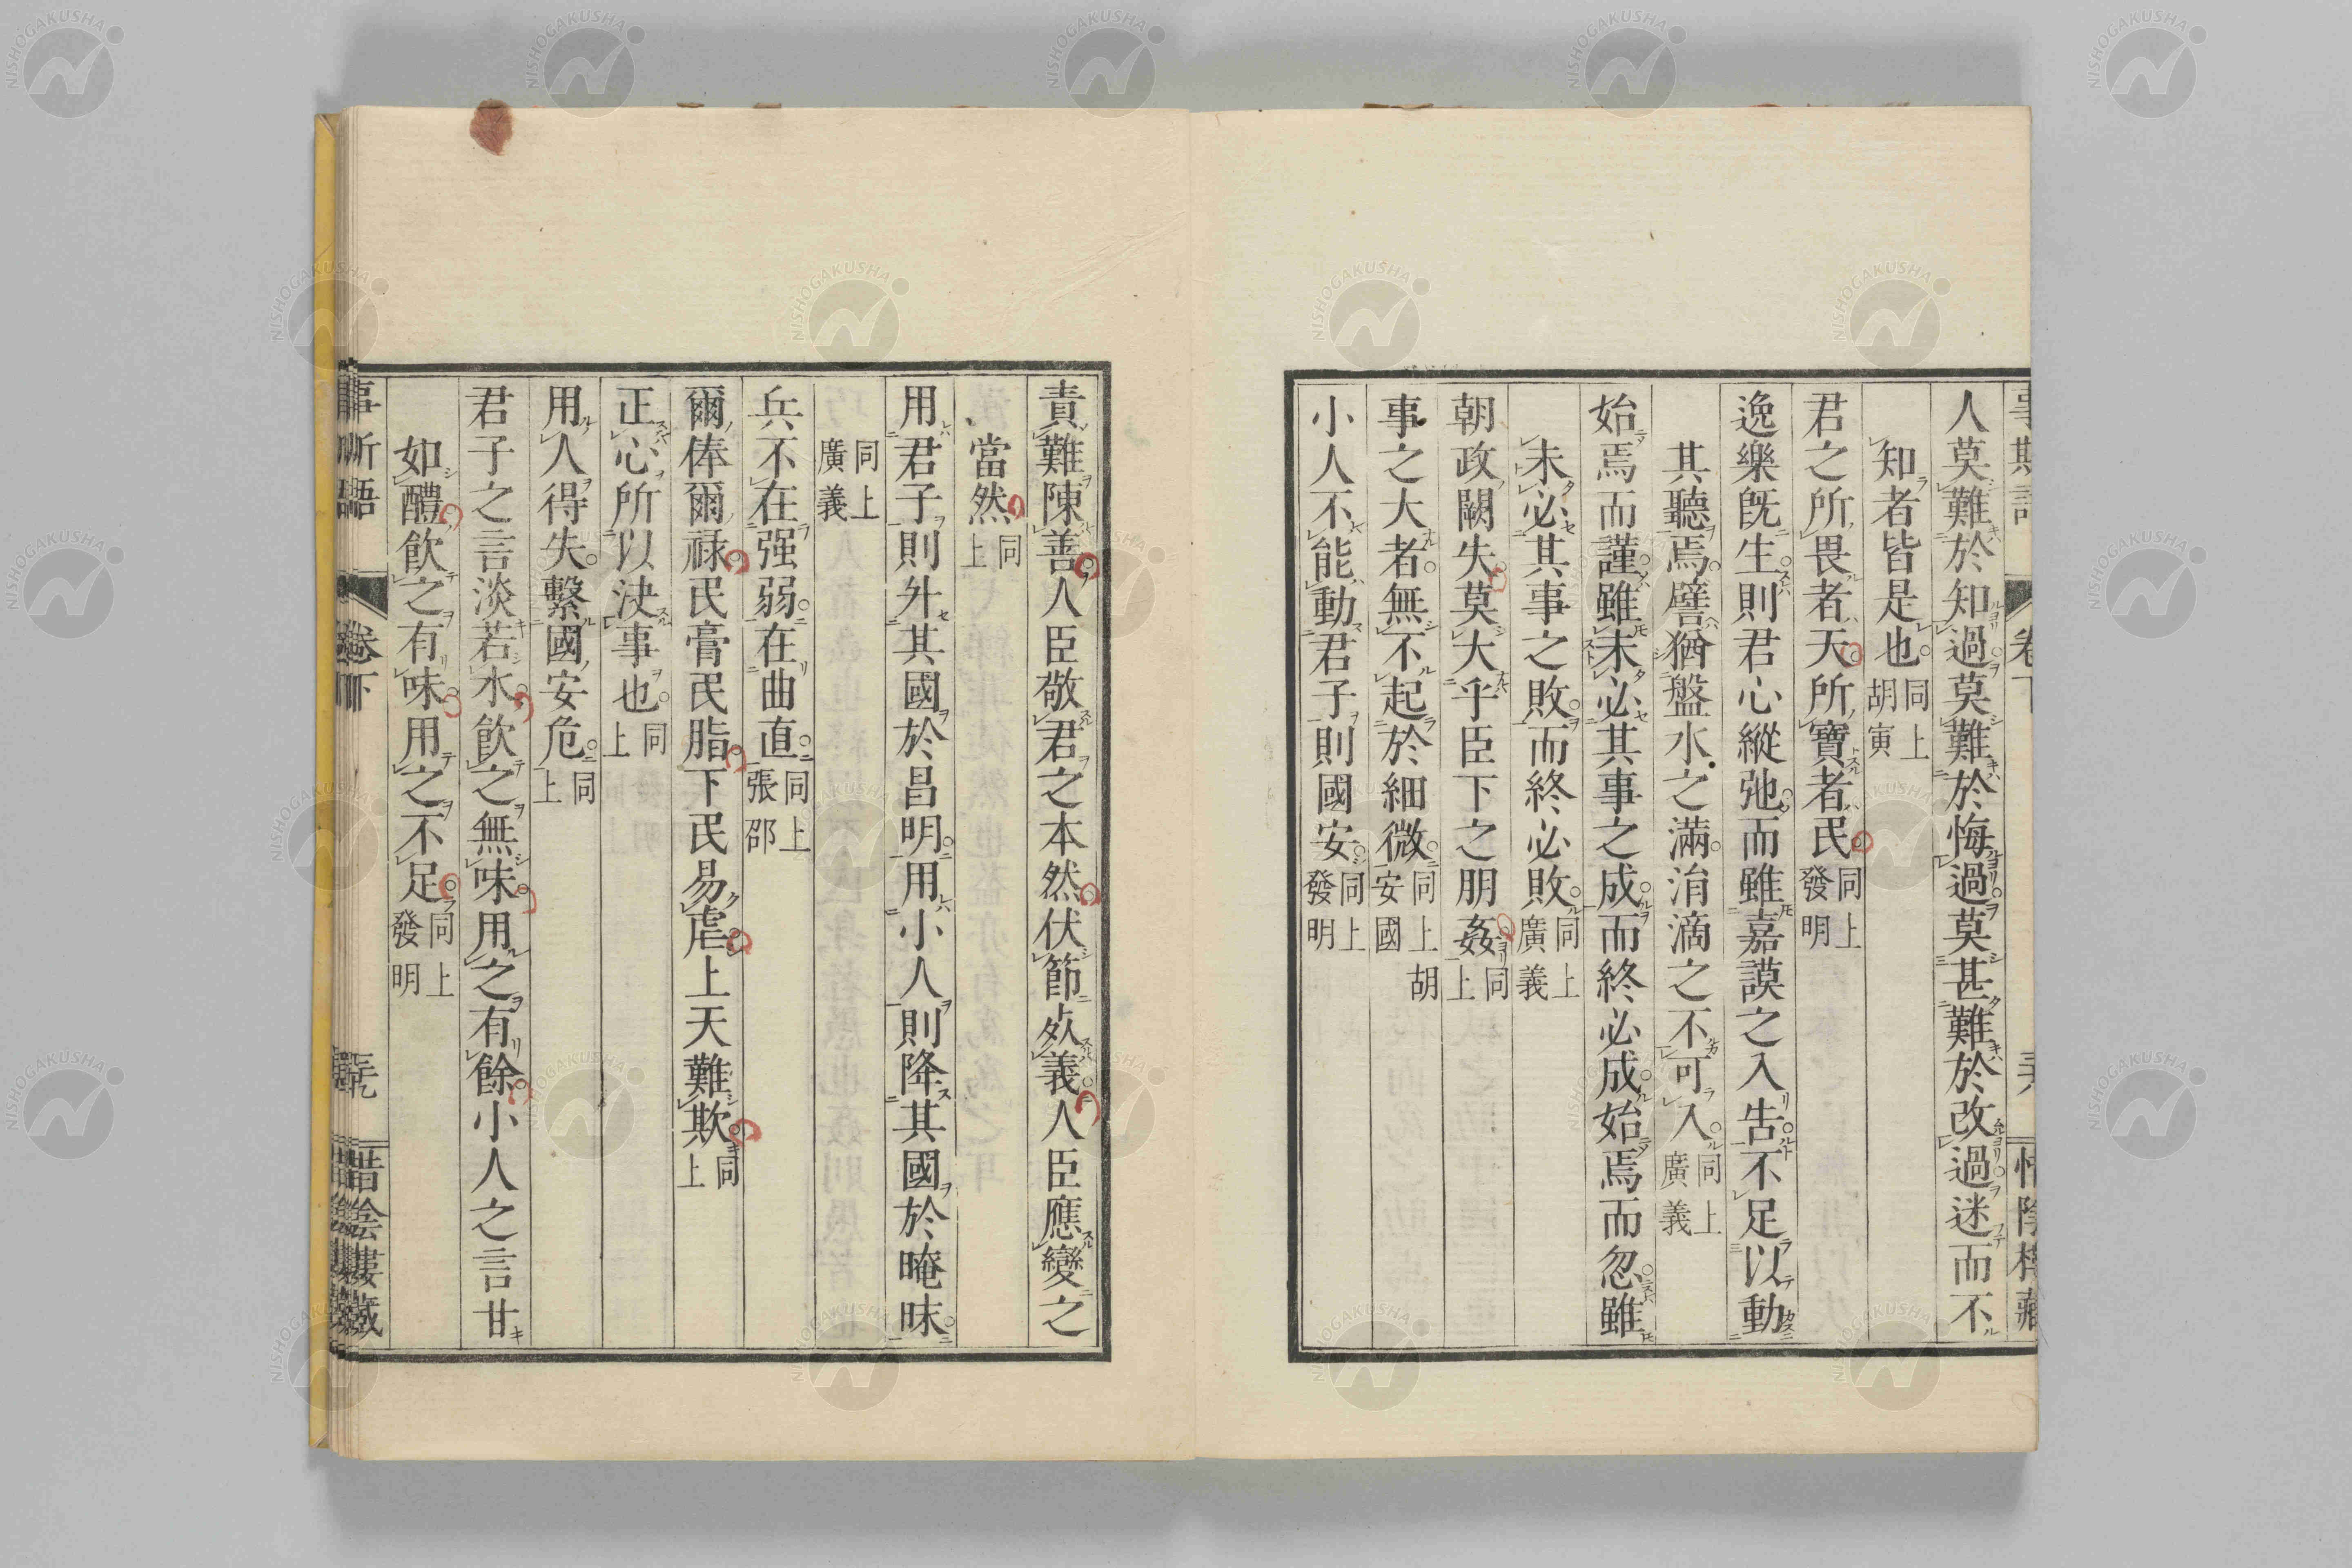 人莫難於知過莫難於悔過莫甚難於改過迷而不
知者皆是也同上胡寅
君之所畏者天所寶者民同上發明
逸樂既生則君心縱弛而雖嘉謨之入告不足以動
其聽焉譬猶盤水之滿涓滴之不可入同上廣義
始焉而謹雖未必其事之成而終必成始焉而忽雖
未必其事之敗而終必敗同上廣義
朝政闕失莫大乎臣下之朋姦同上
事之大者無不起於細微同上胡安國
小人不能動君子則國安同上發明
責難陳善人臣敬君之本然伏節死義人臣應變之
當然同上
用君子則外其國於昌明用小人則降其國於晻昧
同上廣義
兵不在强弱在曲直同上張邵
爾俸爾祿民膏民脂下民易虐上天難欺同上
正心所以決事也同上
用人得失繫國安危同上
君子之言淡若水飲之無味用之有餘小人之言甘
如醴飲之有味用之不足同上發明
卷下
NISHOGAKUSHA